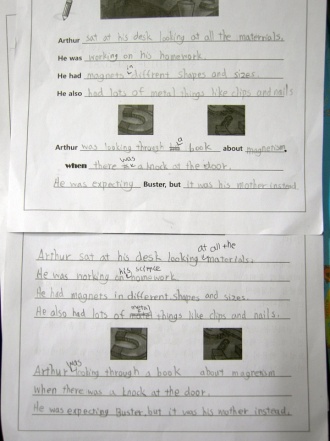 Arthur sat at his desk looking at all the materials.
He was working on his homework.
He had magnets in different shapes and sizes.
He also had lots of metal things like clips and nails
Arthur was looking through a book about magnetism.
when there was a knock at the door.
He was expecting Buster, but it was his mother instead
Arthur sat at his desk looking at all the materials.
He was working on his science homework.
He had magnets in different shapes and sizes.
He also had lots of metal things like clips and nails.
Arthur was looking through a book about magnetism
when there was a knock at the door.
He was expecting Buster, but it was his mother instead.